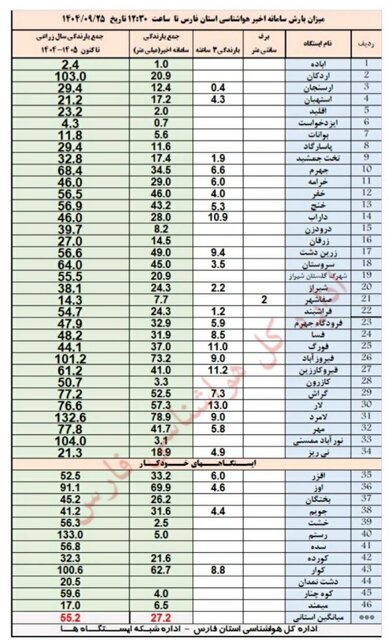 میزان بارش سامانه اخیر هواشناسی استان فارس تا ساعت 12:30 تاریخ 1404/09/25
ردیف نام ایستگاه برف سانتی متر بارندگی 3 ساعته جمع بارندگی سامانه اخیر(میلی متر) جمع بارندگی سال زراعی 1405-1404 تا کنون
1 اباده 1.0 2.4
2 اردکان 20.9 103.0
3 ارسنجان 0.4 12.4 29.4
4 استهبان 4.3 17.2 21.2
5 اقلید 2.0 23.2
6 ایزدخواست 0.7 4.3
7 بوانات 5.6 11.8
8 پاسارگاد 11.6 29.4
9 تخت جمشید 1.9 17.4 32.8
10 جهرم 6.6 34.5 68.4
11 خرامه 6.0 29.0 46.0
12 خفر 4.0 46.0 56.5
13 خنج 5.3 43.2 56.9
14 داراب 10.9 28.0 46.0
15 درودزن 8.2 39.7
16 زرقان 14.5 27.0
17 زرین دشت 9.4 49.0 56.6
18 سروستان 3.5 45.0 64.0
19 شهرک گلستان شیراز 20.9 55.5
20 شیراز 2.2 24.3 38.1
21 صفاشهر 2 7.7 14.3
22 فراشبند 1.2 24.3 54.7
23 فرودگاه جهرم 5.9 32.9 47.9
24 فسا 8.5 31.9 48.2
25 فورگ 11.0 37.0 44.1
26 فیروزآباد 9.0 73.2 101.2
27 قیروکارزین 11.2 41.0 61.2
28 کازرون 3.3 50.7
29 گراش 7.3 52.5 77.2
30 لار 13.0 57.3 76.6
31 لامرد 9.0 78.9 132.6
32 مهر 5.8 41.7 77.8
33 نورآباد ممسنی 3.1 104.0
34 نی ریز 4.9 18.9 21.3
ایستگاههای خودکار
35 افزر 6.0 33.2 52.5
36 اوز 4.6 69.9 91.1
37 بختگان 26.2 45.2
38 جویم 4.4 31.6 41.2
39 خشت 2.5 56.3
40 رستم 5.0 133.0
41 سده 56.8
42 کورده 21.6 32.3
43 کوار 8.8 62.7 100.6
44 دشت نمدان 20.5
45 کوه چنار 4.0 59.6
46 میمند 6.5 17.0
*** میانگین استانی 27.2 55.2
اداره کل هواشناسی استان فارس - اداره شبکه ایستگاه ها
اداره کل هواشناسی فارس